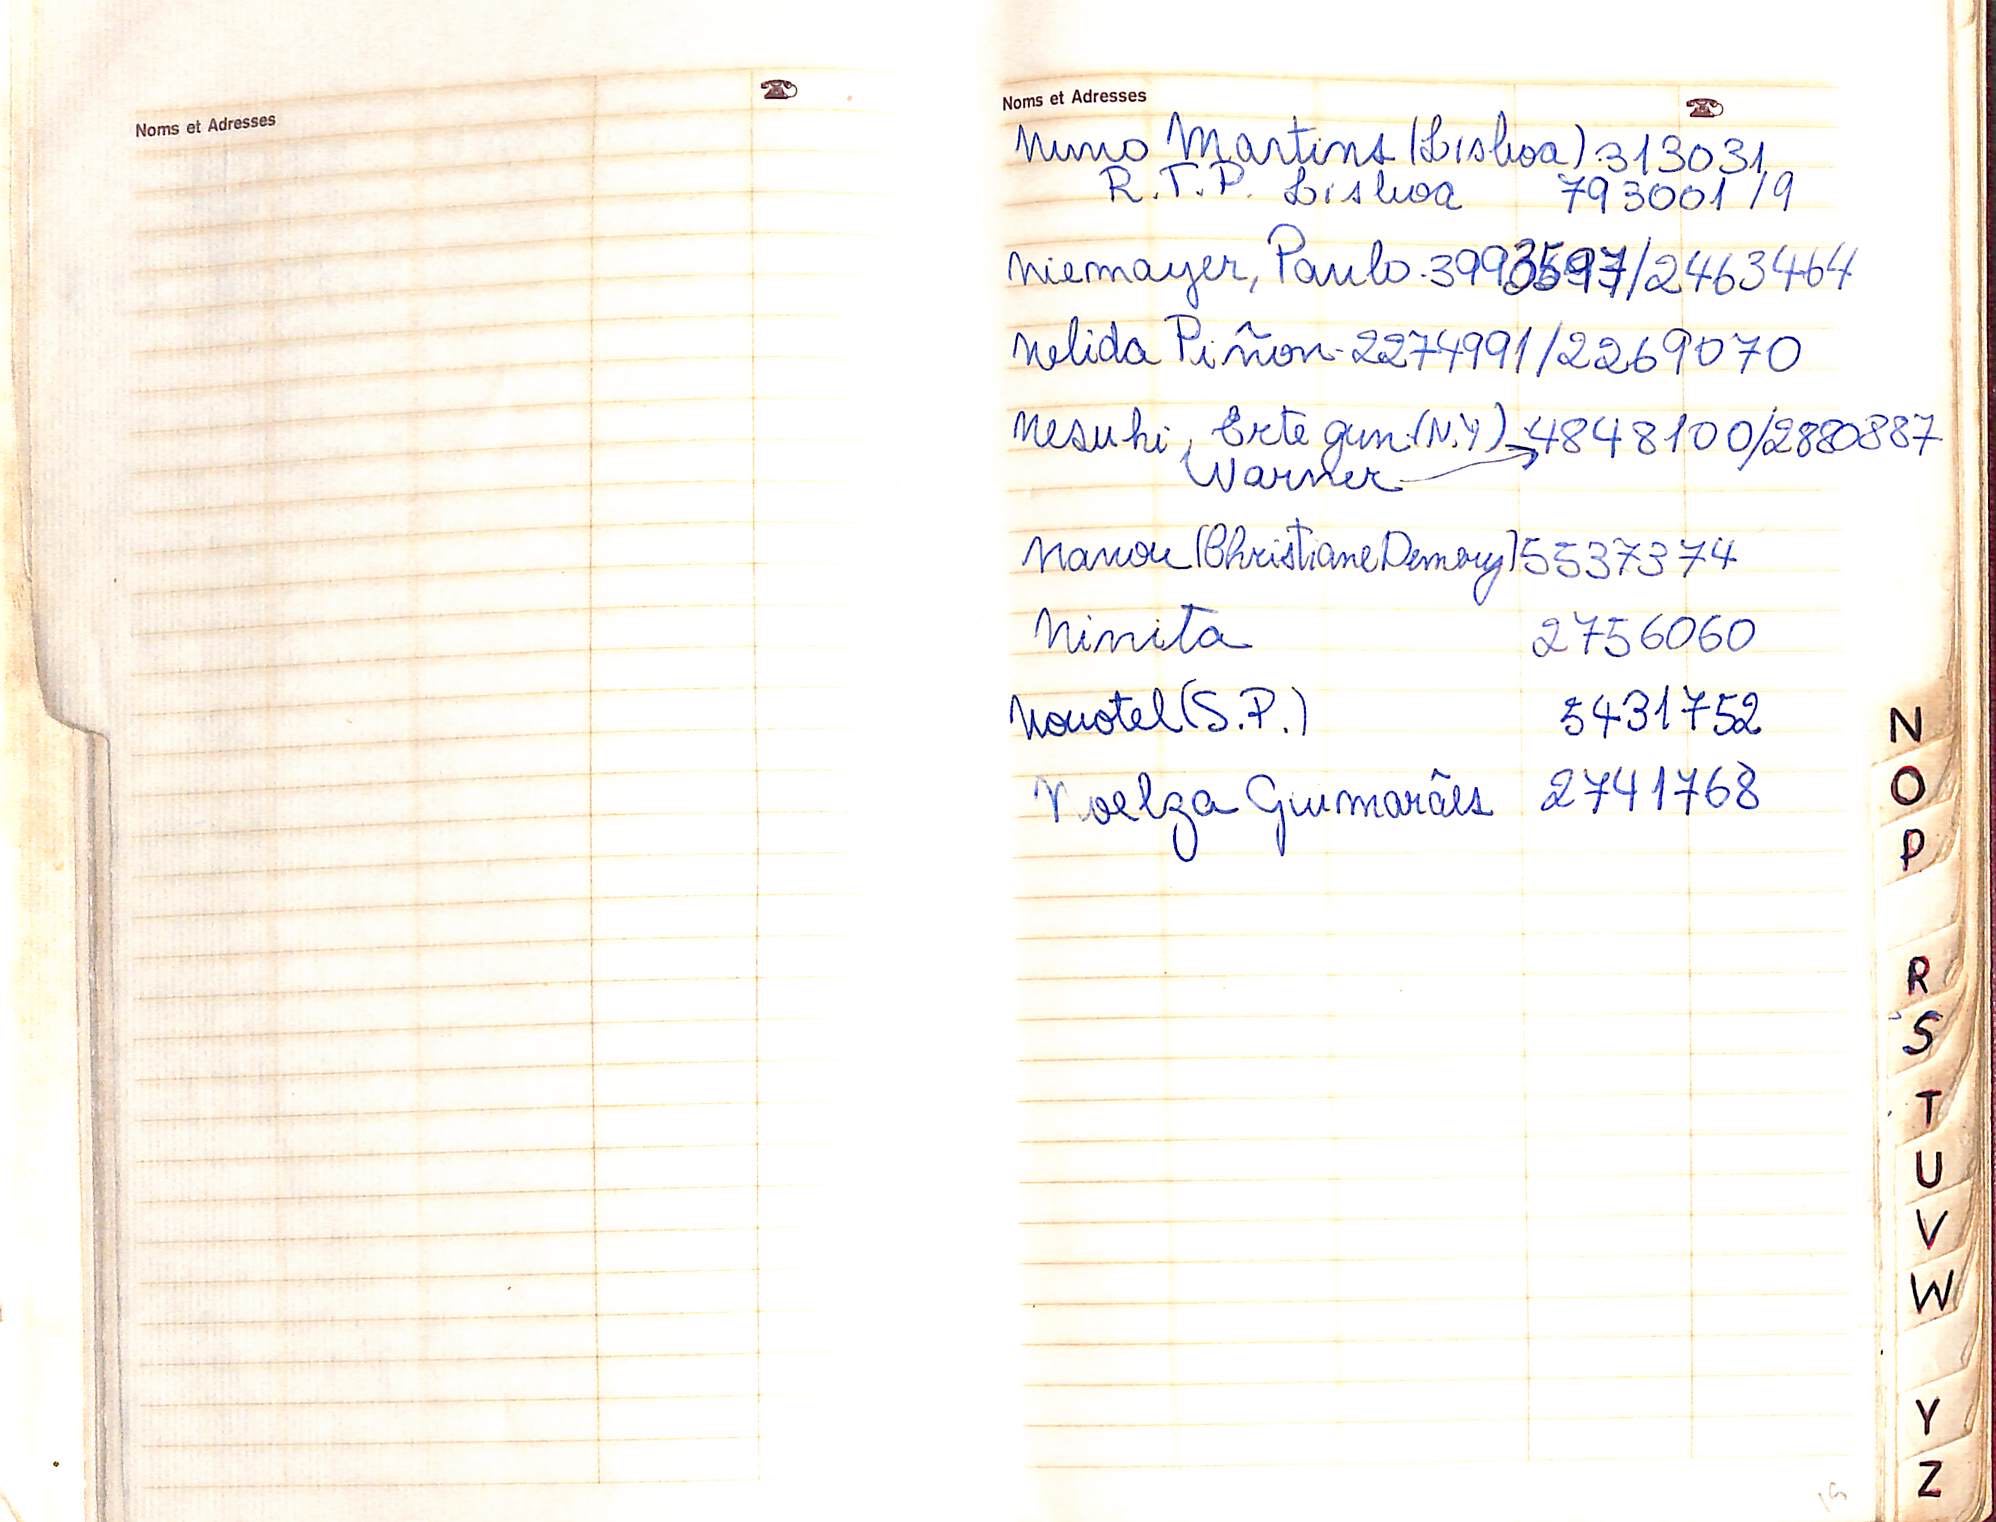 Noms et Adresses
Noms et Adresses
Nuno Martins (Lisboa) 313031
R.T.P. Lisboa 793001/9
Niemayer, Paulo - 399 /2463464
Nelida Piñon - 2274991/2269070
Nesuhi, Ertegun (N.Y) 4848100/2880887
Warner
Nanou (Christiane Demory) 5537374
Ninita 2756060
Novotel (S.P.) 5431752
Noelza Guimarães 2741768
N
O
P
R
S
T
U
V
W
Y
Z